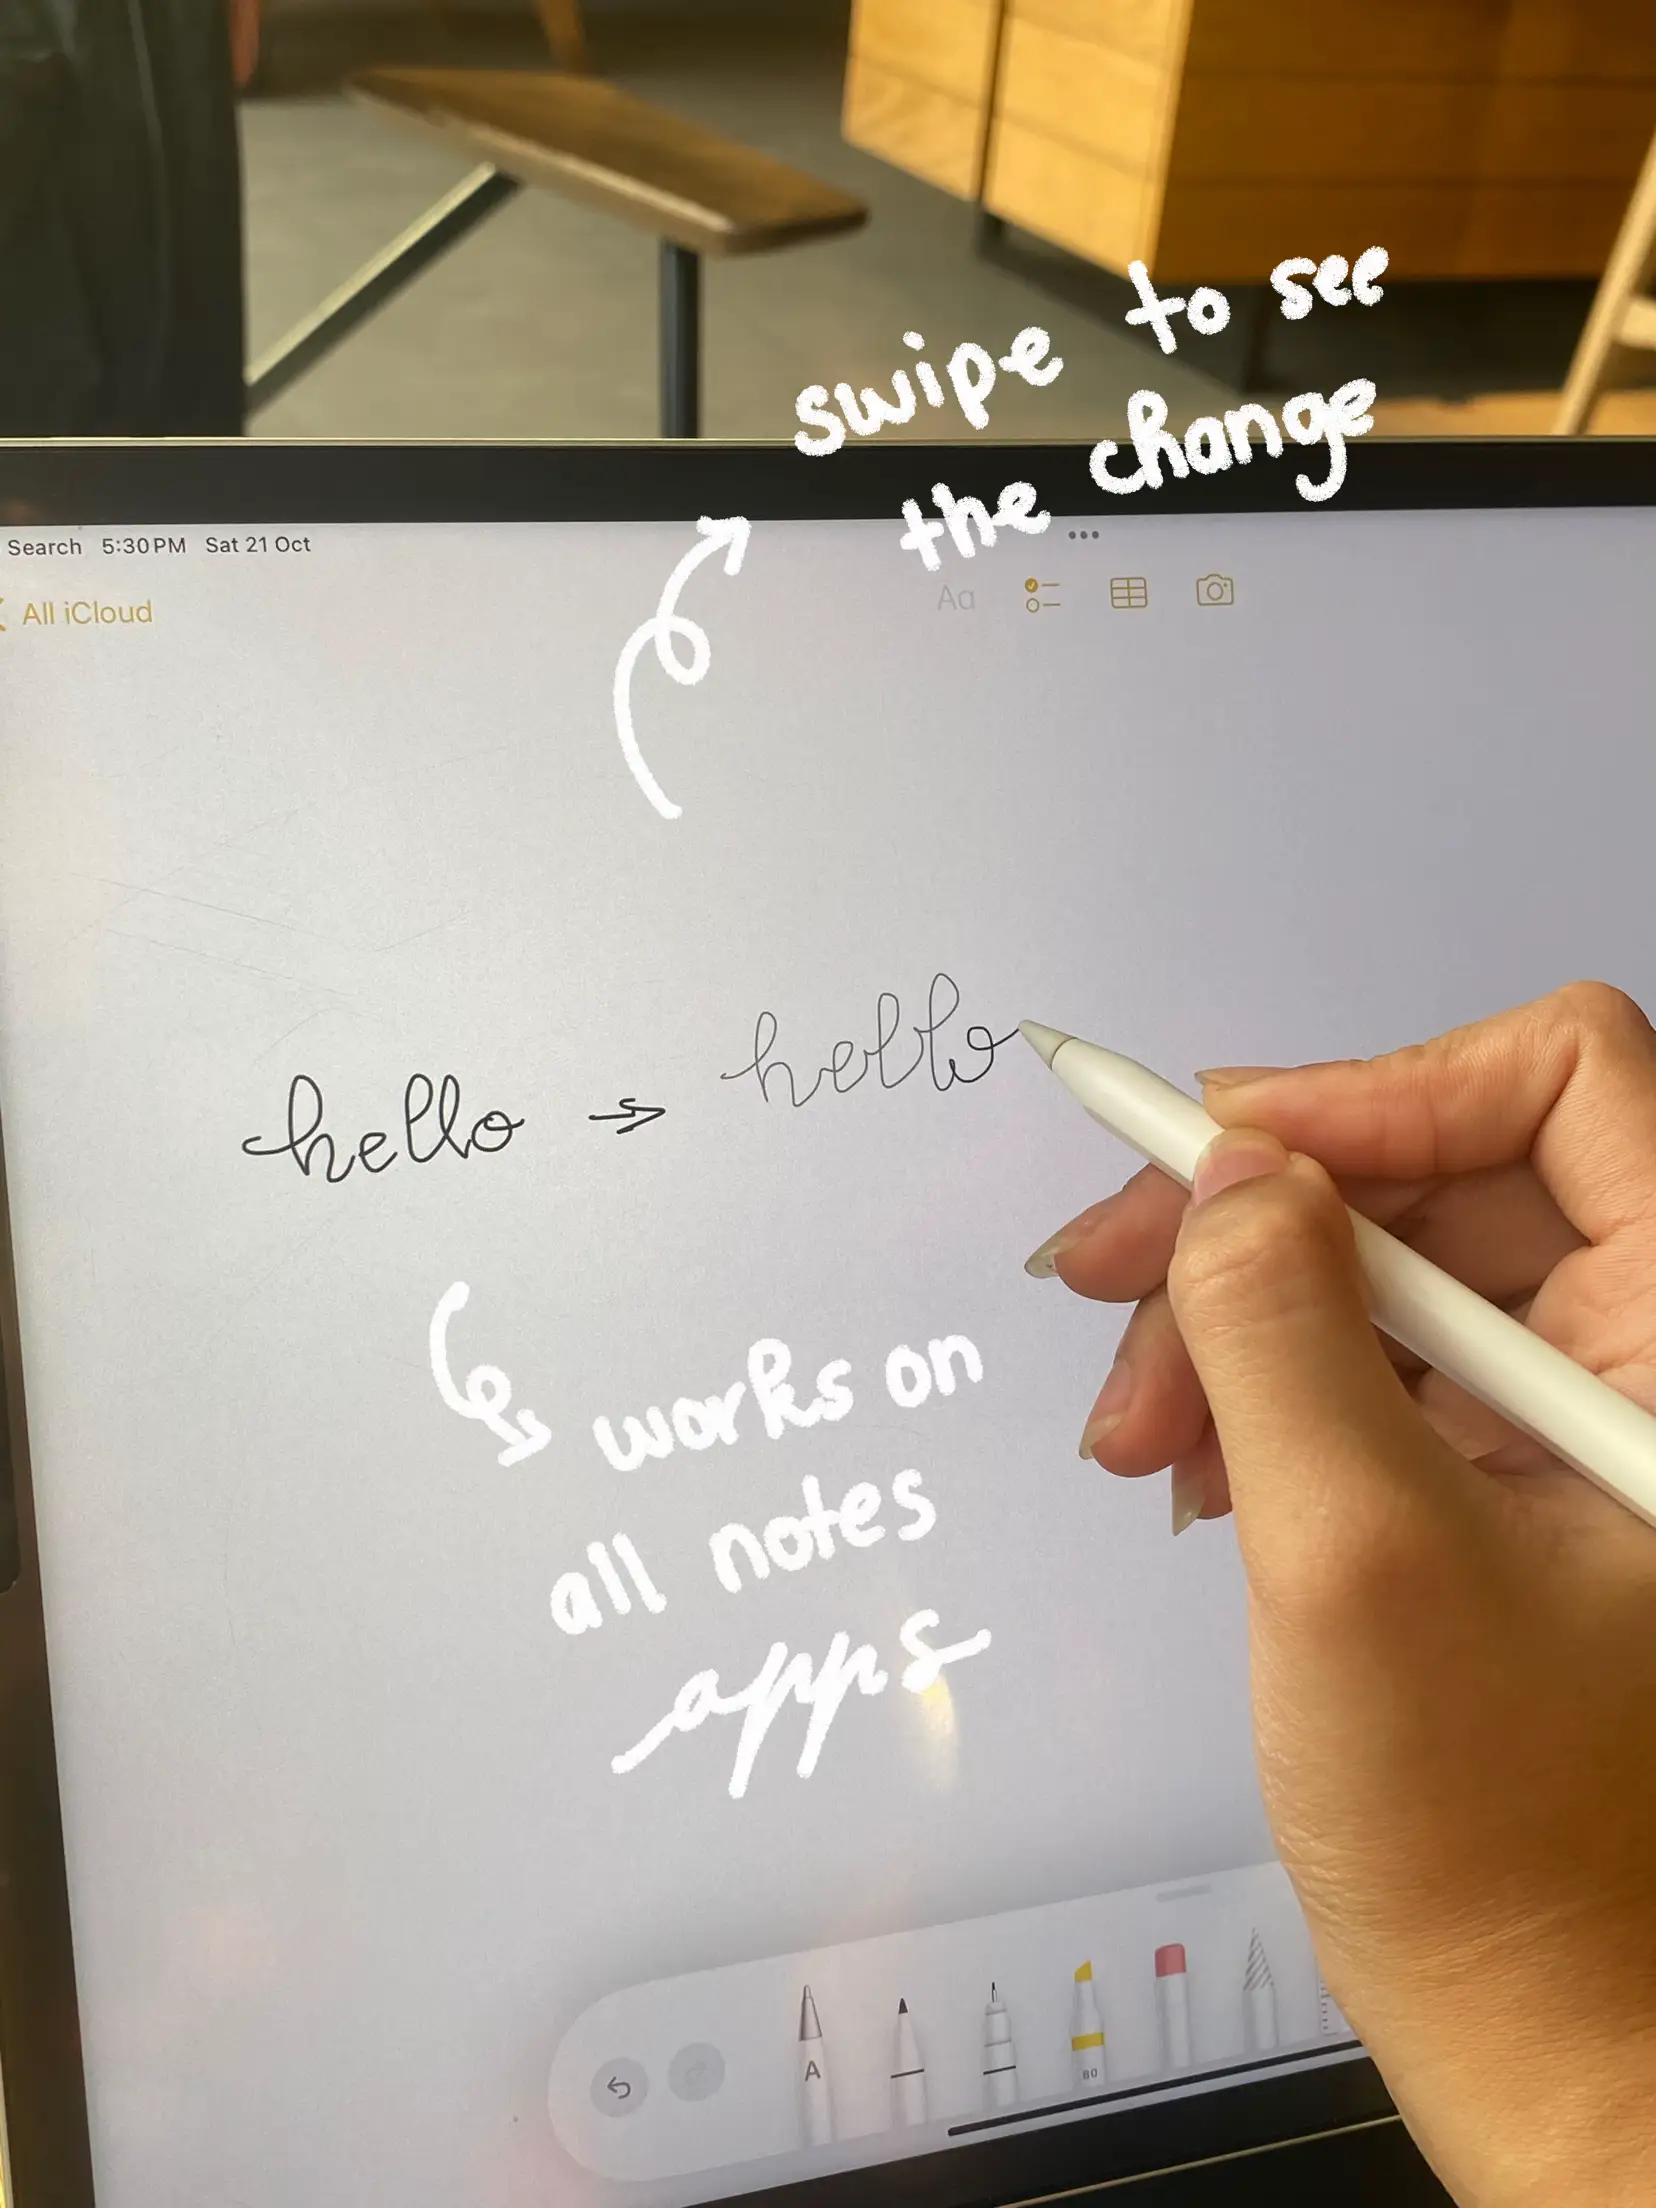 swipe to see
the change
Search 5:30 PM Sat 21 Oct
All iCloud
Aa
hello → hello
works on
all notes
apps
A
80